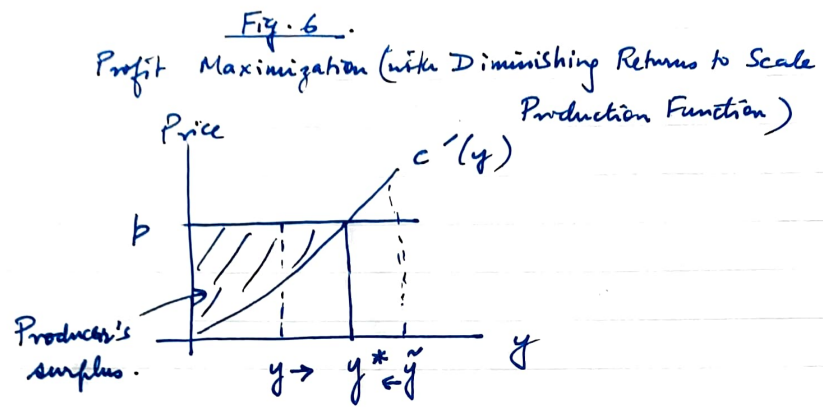 Fig. 6.
Profit Maximization (with Diminishing Returns to Scale
Production Function)
Price
c'(y)
p
Producer's
surplus.
y → y* ← ỹ
y